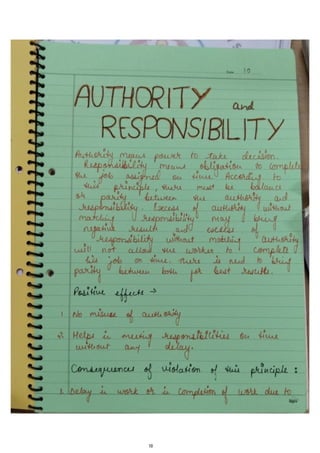 Date 10
AUTHORITY and
RESPONSIBILITY
Authority means power to take decision.
Responsibility means obligation to complete
the job assigned on time. According to
this principle, there must be balance
or parity between the authority and
responsibility. Excess of authority without
matching responsibility may bring
negative results and excess of
responsibility without matching authority
will not allow the worker to complete
his job on time. There is need to bring
parity between both for best results.
Positive effects →
1. No misuse of authority
2. Helps in meeting responsibilities on time
without any delay.
Consequences of violation of this principle :
1. Delay in work or in completion of work due to
10